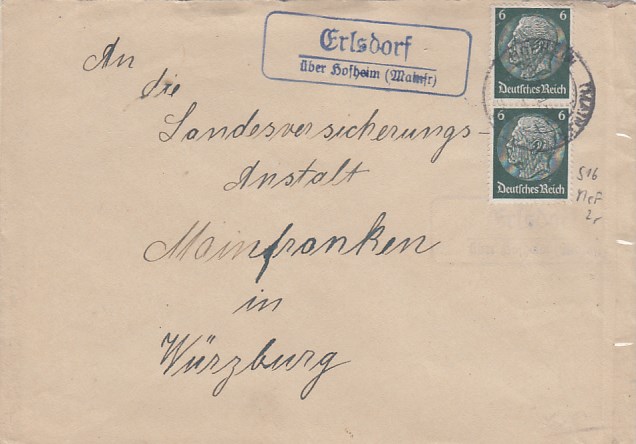 Erlsdorf
über Hofheim (Mainfr)
6
Deutsches Reich
6
Deutsches Reich
An
die
Landesversicherungs-
Anstalt
Mainfranken
in
Würzburg
516
MeF